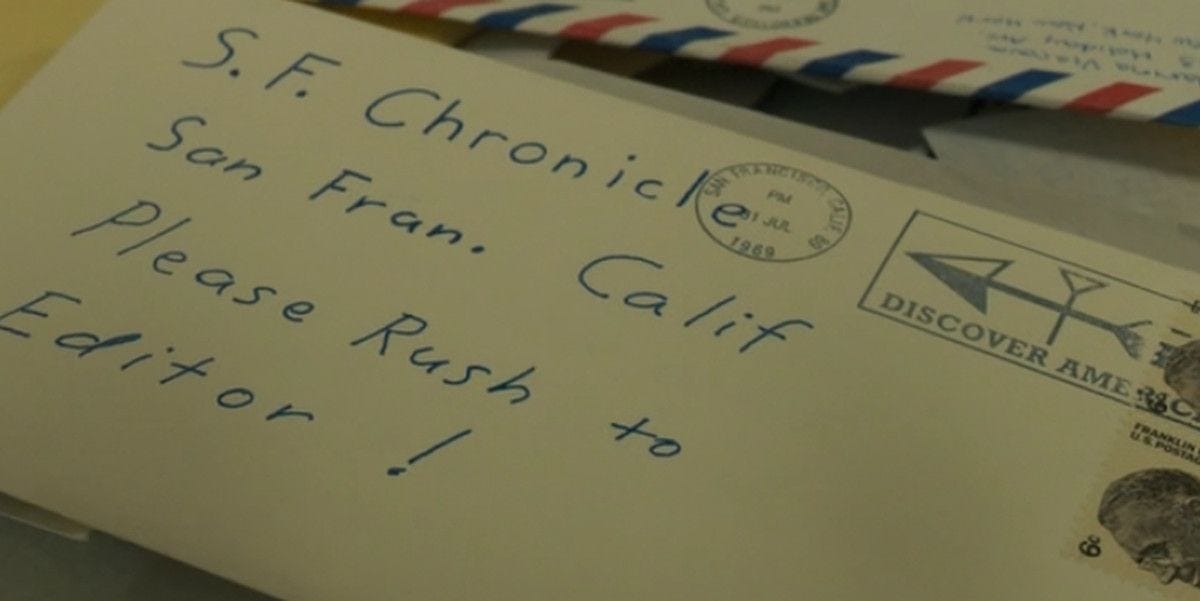 S.F. Chronicle
San Fran. Calif
Please Rush to
Editor !
SAN FRANCISCO, CALIF
PM
31 JUL
1969
DISCOVER AMERICA
FRANKLIN
U.S. POSTAG
6c